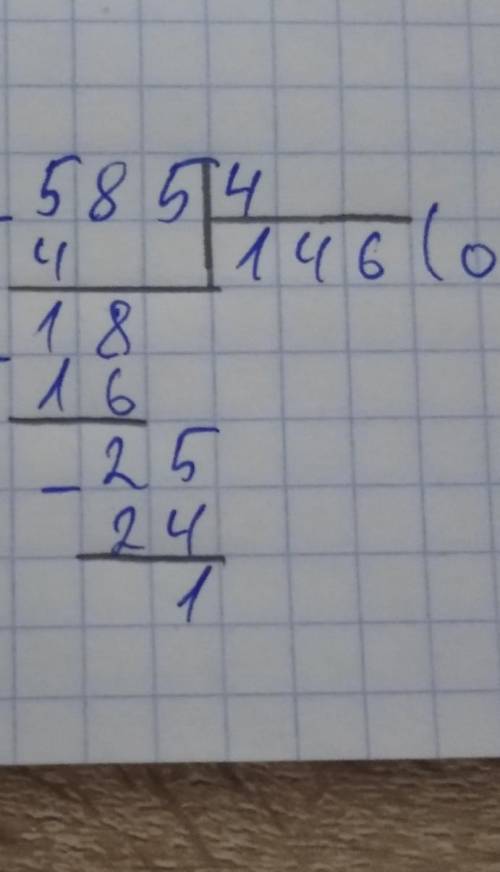 - 585 4
4 146 (о
- 18
16
- 25
24
1